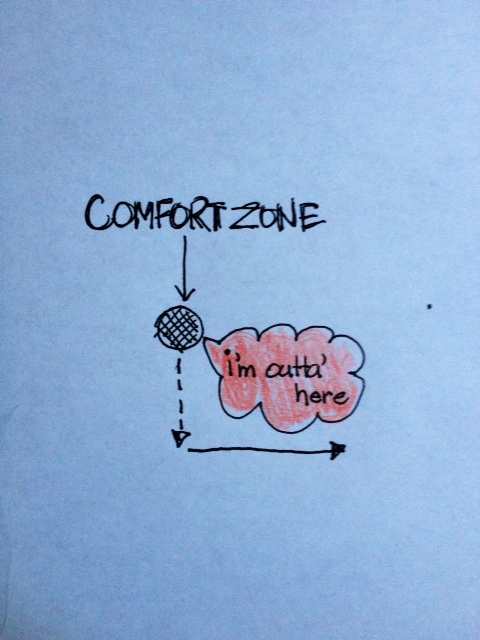 COMFORT ZONE
i'm outta'
here